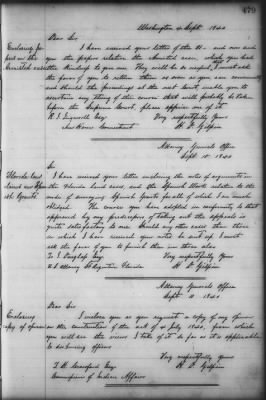 479
Washington 4 Sept 1840
Dear Sir
Enclosing pa-
I have received your letter of the 31. and now send
you the papers relative to the Amistad case, which you had
the kindness to give me. They will be so
the favor of you to return them as soon as you can conveniently
and should the proceedings of the next Court enable you to
ascertain any thing of the course that will probably be taken
before the Supreme Court, please apprise me of it
R. I. Ingersoll Esq
Very respectfully yours
New Haven Connecticut
H. D. Gilpin
Attorney Generals Office
Sept. 10 1840
Sir
Florida land
I have received your letter enclosing the note of arguments in
the Florida land cases, and the Spanish Work relative to the
mode of surveying Spanish Grants for all of which I am much
obliged. The course you have adopted in conformity to that
approved by my predecessor of taking out the appeals is
quite satisfactory to me. Should any other cases than those
in which I have received your notes be sent up, I must
ask the favor of you to furnish them in those also
Very respectfully yours
U S Attorney St Augustine Florida
H. D. Gilpin
Attorney Generals Office
Sept 11 1840
Dear Sir
Enclosing
copy of opinion
I enclose you as you request a copy of my opinion
on the construction of the act of 4 July 1840, from which
you will see the views I take of it so far as it is applicable
to disbursing officers
Very respectfully yours
T. H. Crawford Esq
H. D. Gilpin
Commissioner of Indian Affairs